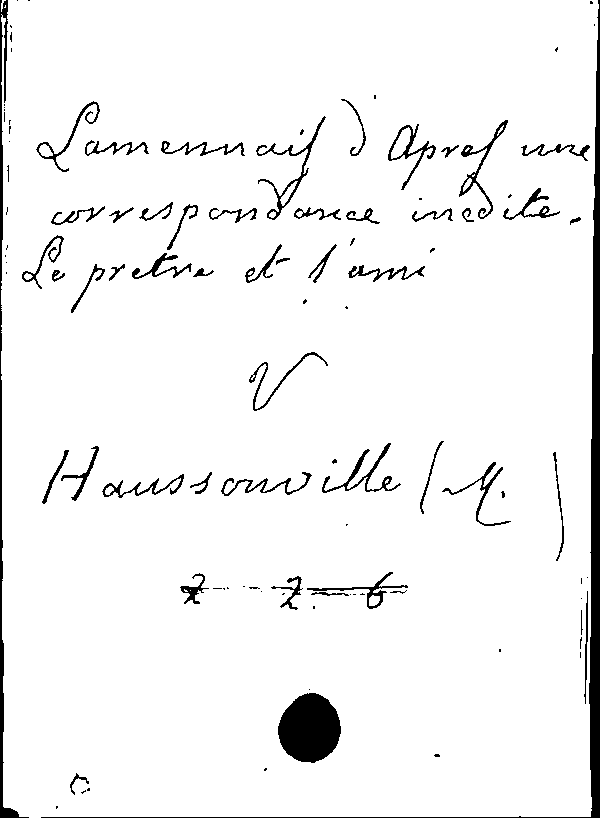 Lamennais d'Apres une
correspondance inedite.
Le pretre et l'ami
V
Haussonville (M. )
2 2. 6